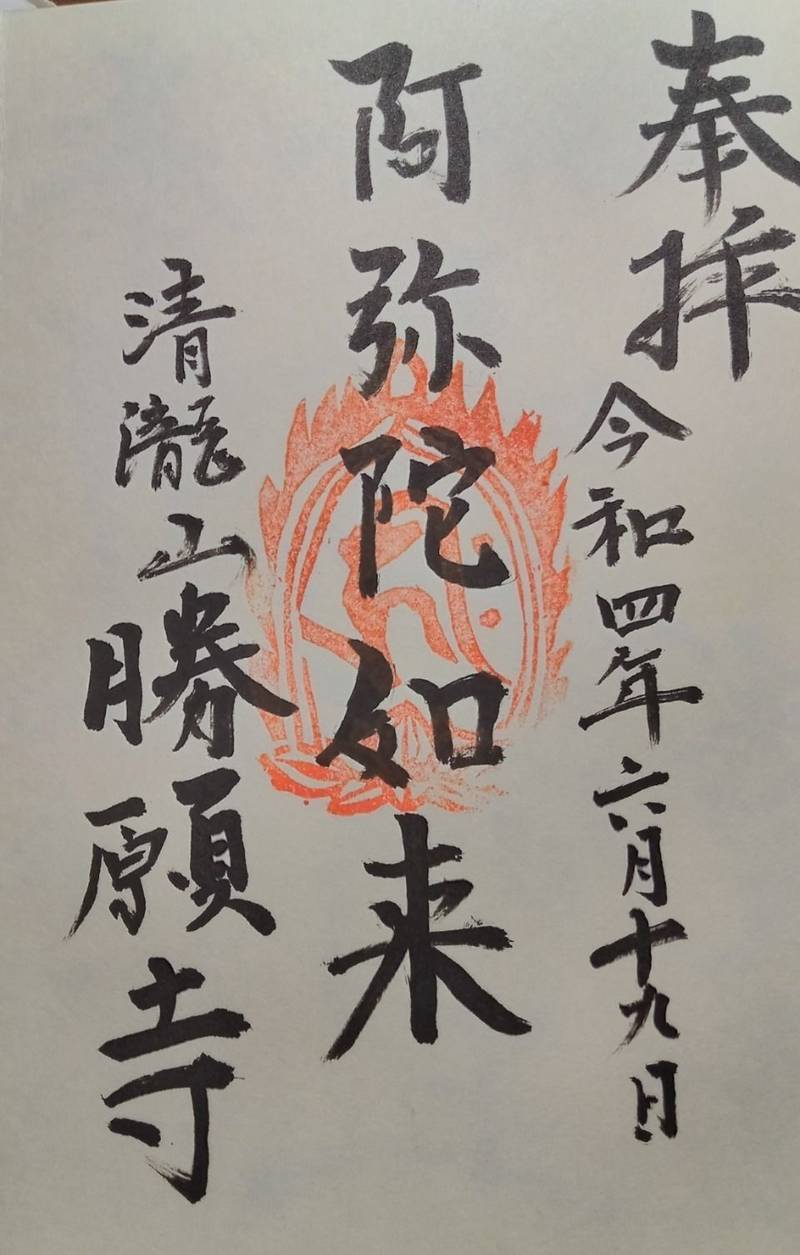 奉拝
令和四年六月十九日
阿弥陀如来
清瀧山勝願寺